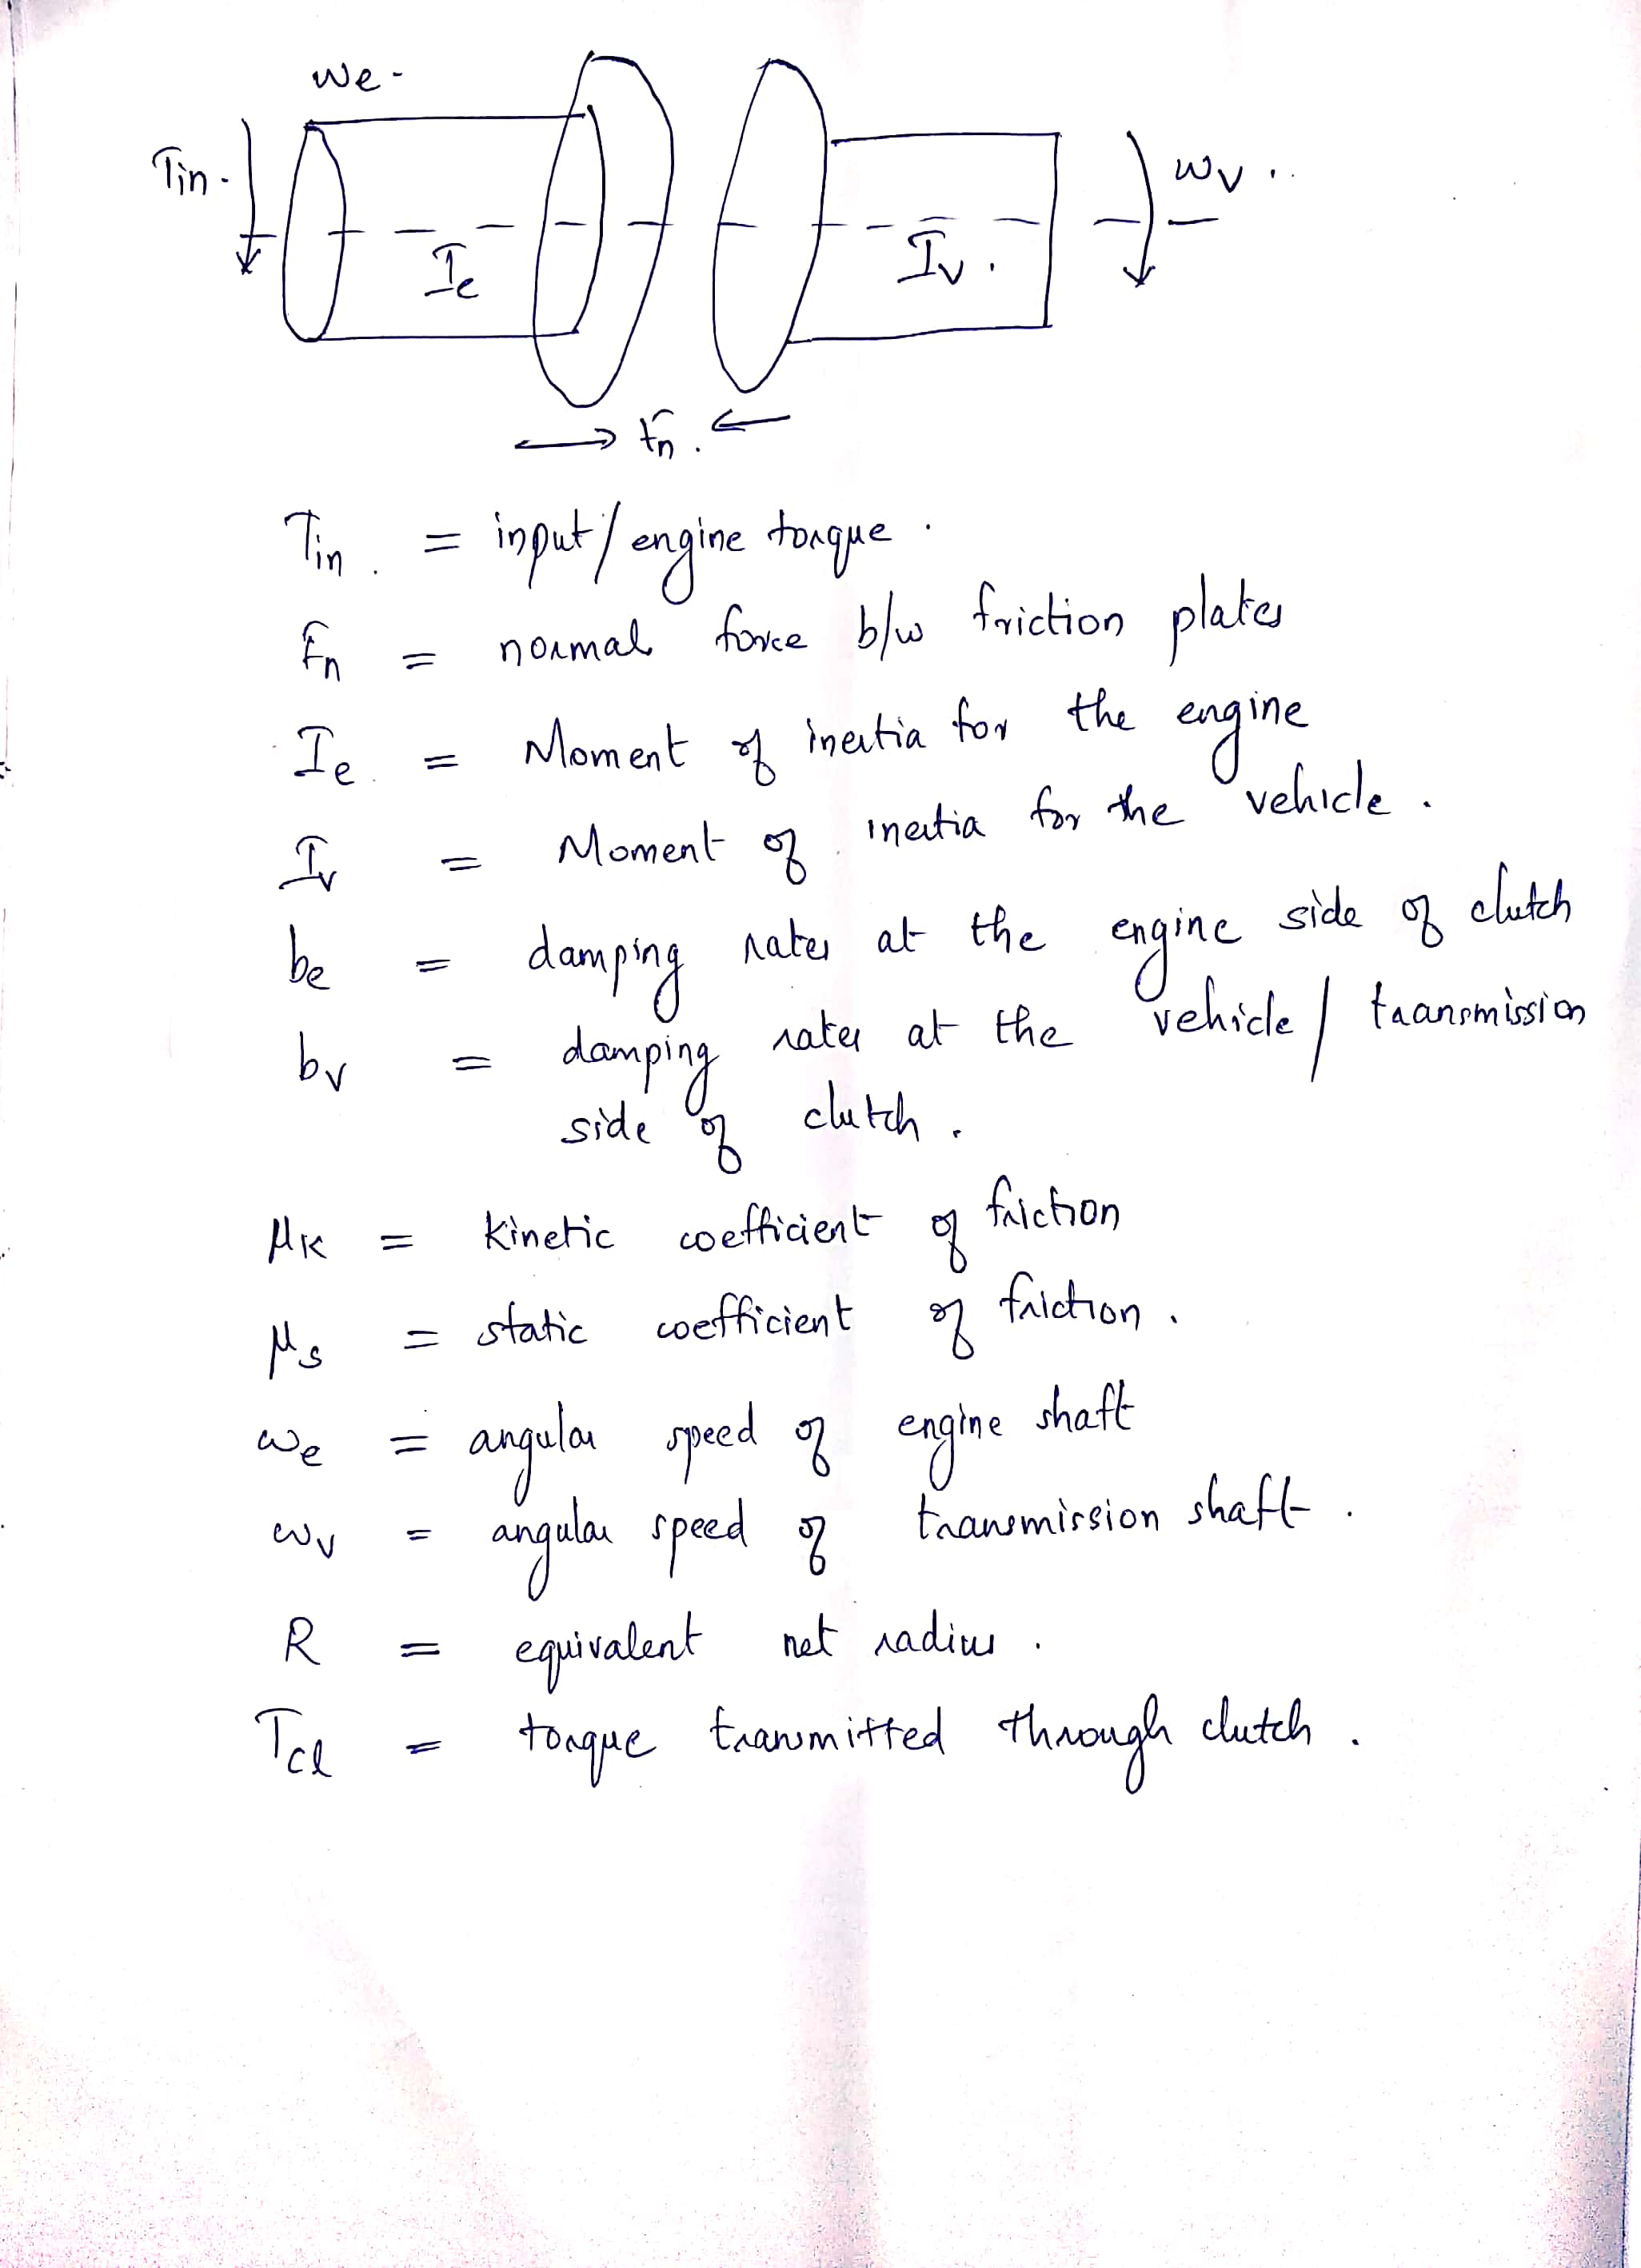 We -
Tin.
Wv ..
Ie
Iv.
Fn.
Tin. = input/engine torque.
Fn = normal force b/w friction plates
Ie. = Moment of inertia for the engine
Iv = Moment of inertia for the vehicle.
be = damping rates at the engine side of clutch
bv = damping rates at the vehicle/transmission
side of clutch.
μK = kinetic coefficient of friction
μs = static coefficient of friction.
ωe = angular speed of engine shaft
ωv = angular speed of transmission shaft.
R = equivalent net radius.
Tcl = torque transmitted through clutch.